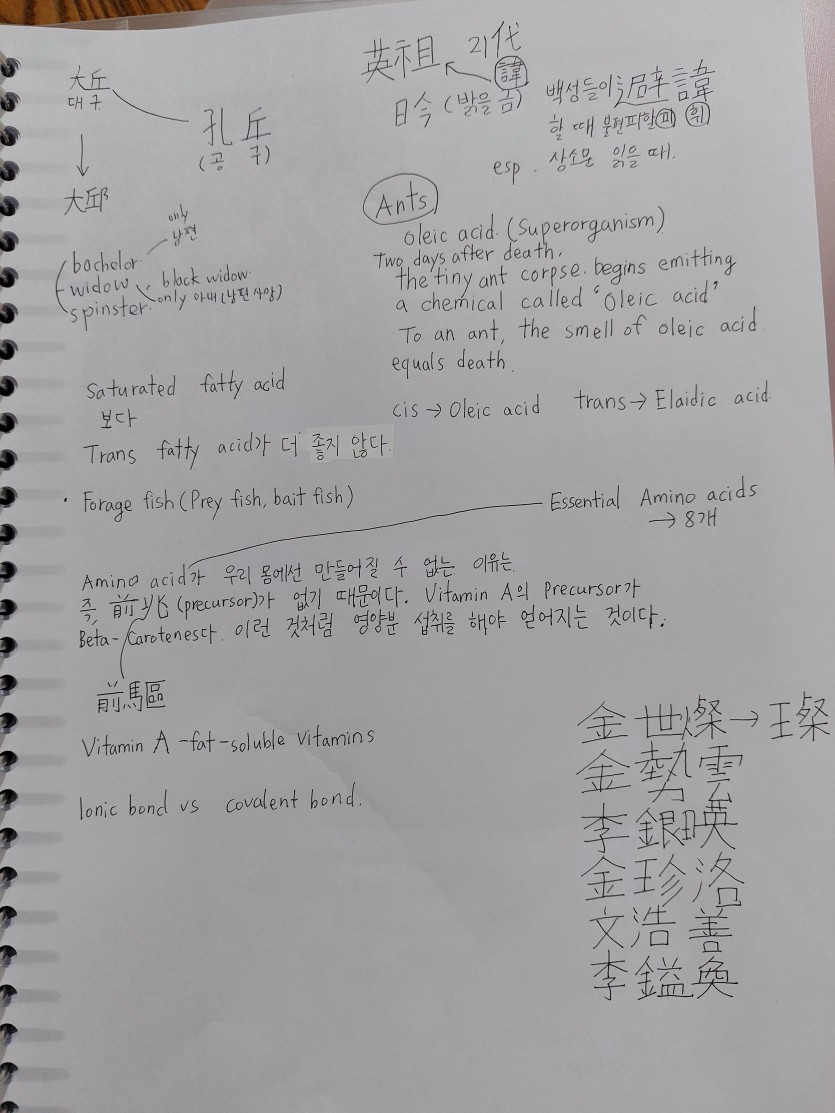 大丘
대구
孔丘
(공 구)
大邱
英祖 21代
諱
日今 (밝을 금)
백성들이 避諱
할 때 불편피할 피 휘
esp. 상소문 읽을 때.
only
남편
bachelor
widow
spinster
black widow
only 아내 (남편 사망)
Ants
oleic acid. (Superorganism)
Two days after death,
the tiny ant corpse. begins emitting
a chemical called 'Oleic acid'
To an ant, the smell of oleic acid.
equals death.
Saturated fatty acid
보다
Trans fatty acid가 더 좋지 않다.
cis → Oleic acid trans → Elaidic acid
· Forage fish (Prey fish, bait fish)
Essential Amino acids
→ 8개
Amino acid가 우리 몸에선 만들어질 수 없는 이유는
즉, 前兆 (precursor)가 없기 때문이다. Vitamin A의 Precursor가
Beta-Carotenes다. 이런 것처럼 영양분 섭취를 해야 얻어지는 것이다.
前馬區
Vitamin A -fat-soluble vitamins
Ionic bond vs covalent bond.
金世燦→璨
金勢雲
李銀暎
金珍洛
文浩善
李鎰奐